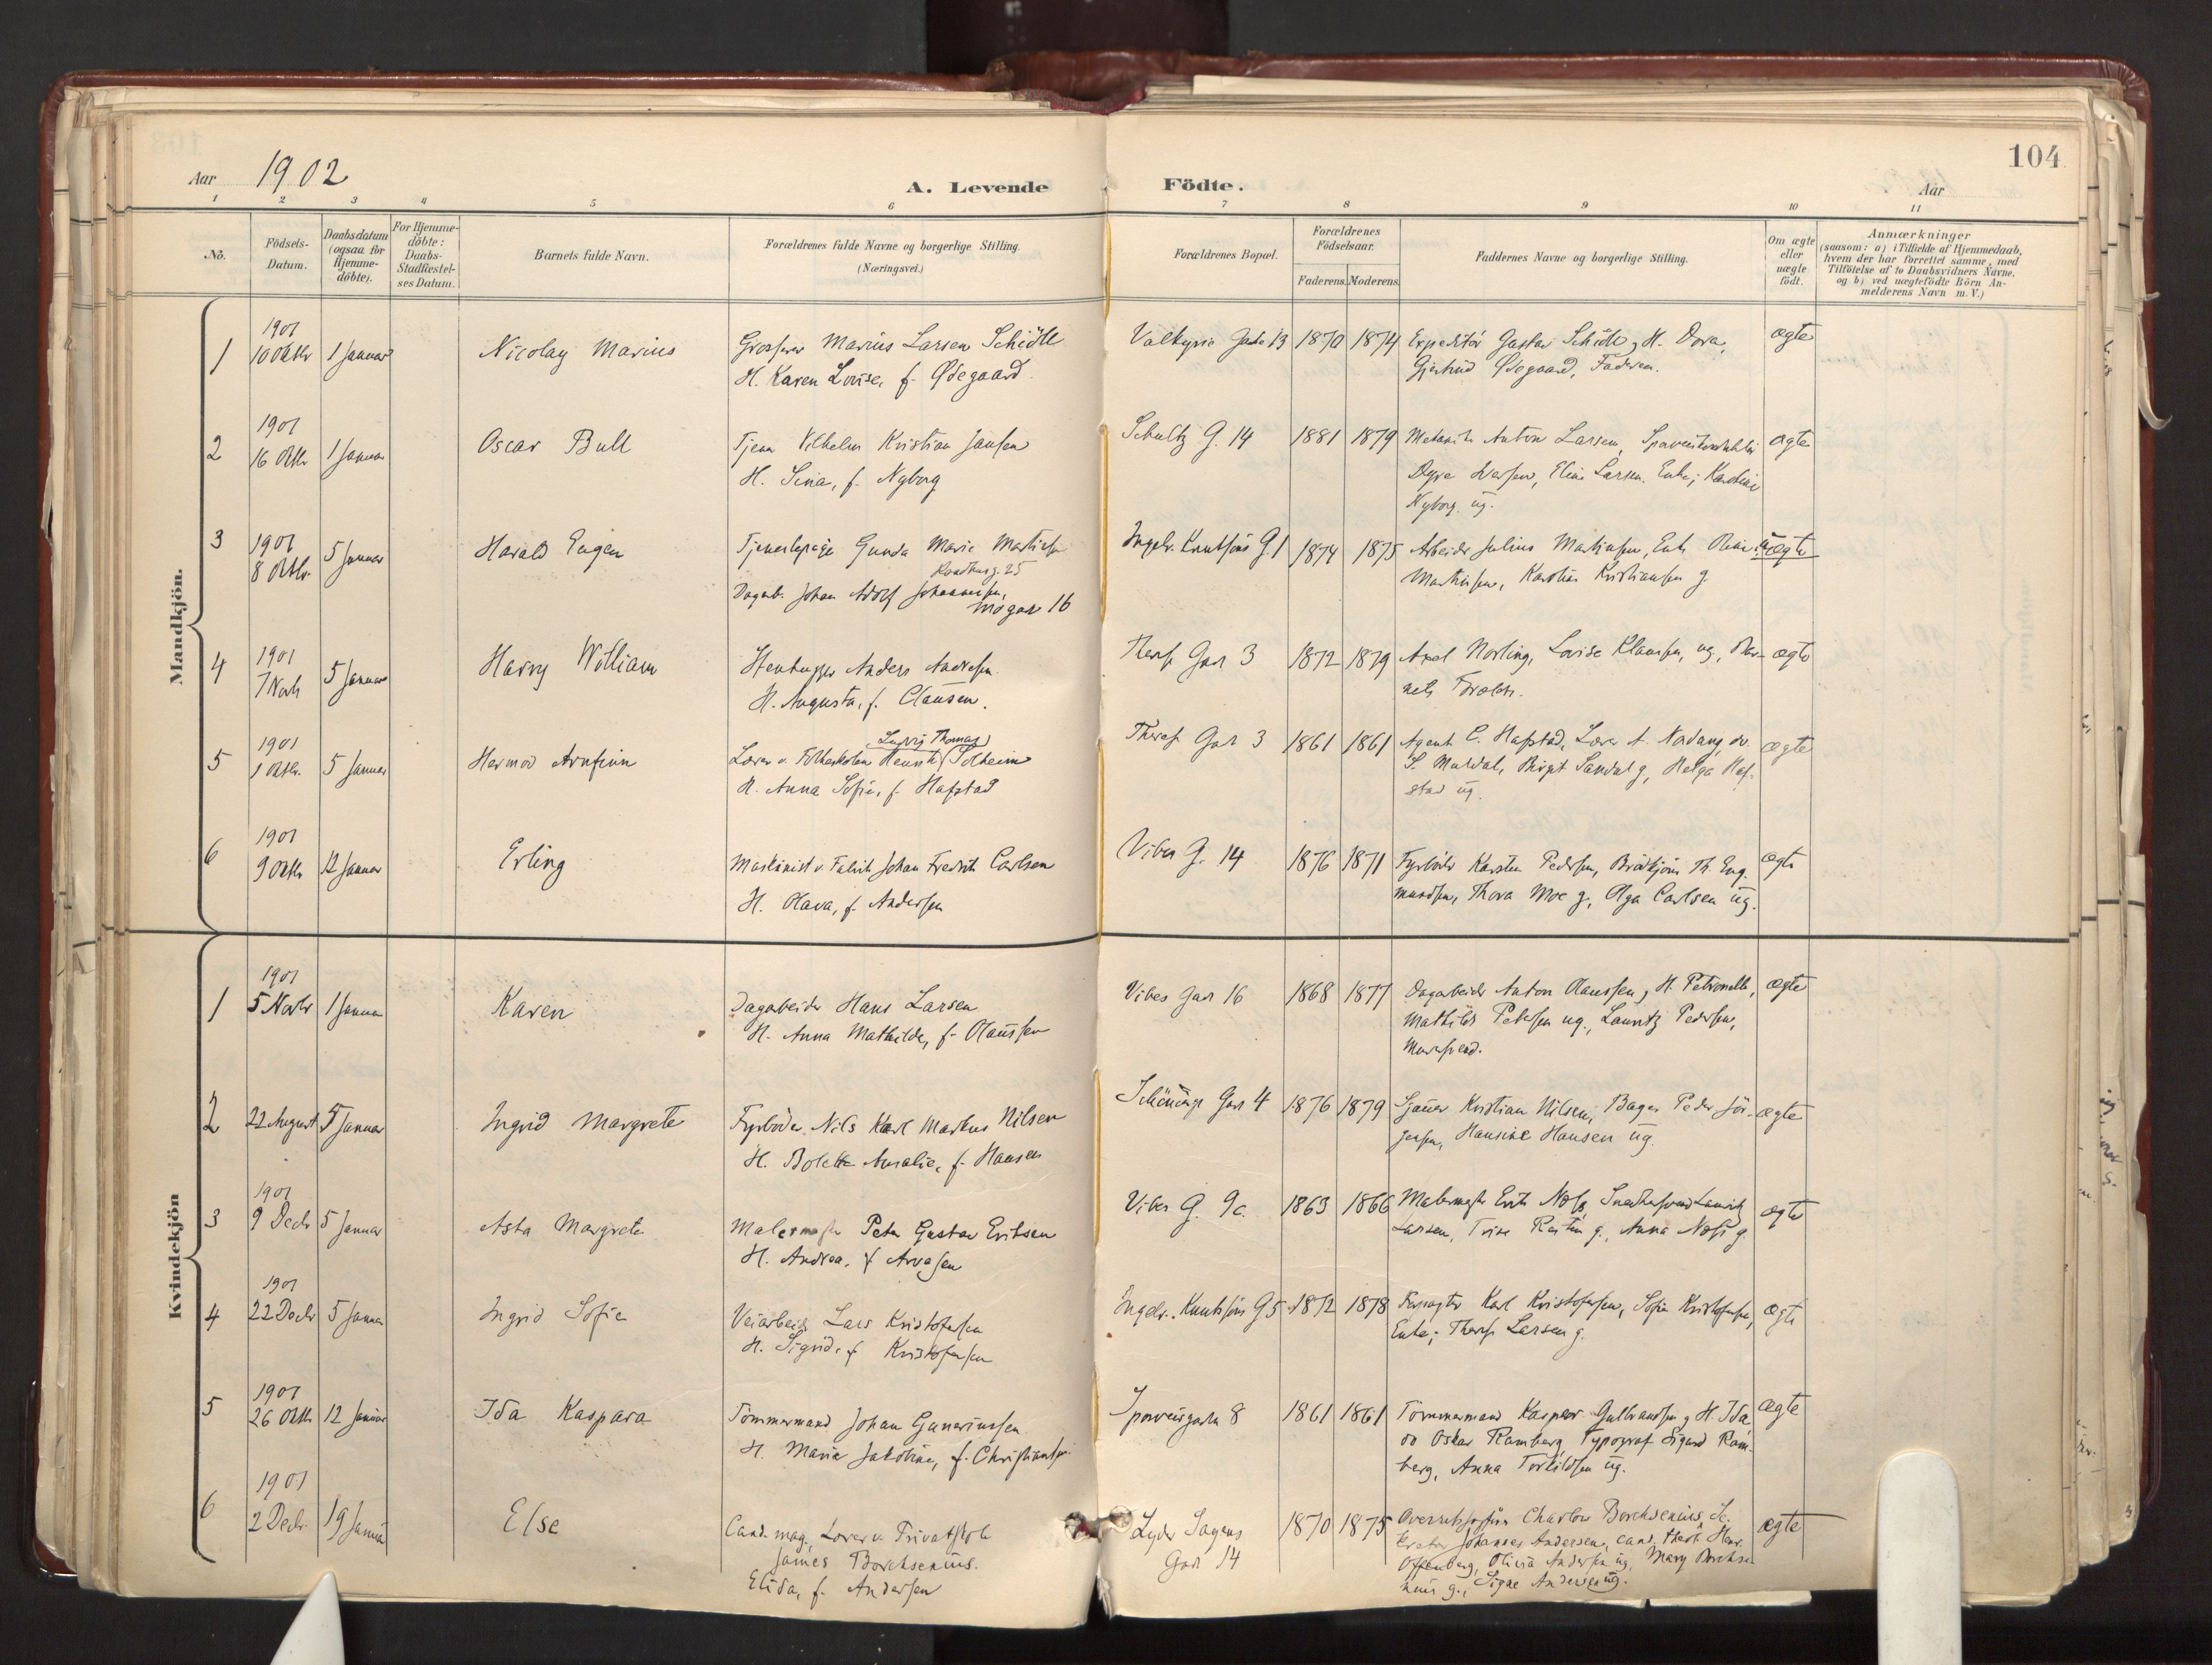 104
Aar 1902
A. Levende
Födte.
Aar
1 2 3 4 5 6 7 8 9 10 11
No.
Födsels-
Datum.
Daabsdatum
(ogsaa for
Hjemme-
döbte).
For Hjemme-
döbte:
Daabs-
Stadfæstel-
ses Datum.
Barnets fulde Navn.
Forældrenes fulde Navne og borgerlige Stilling.
(Næringsvei.)
Forældrenes Bopæl.
Forældrenes
Födselsaar.
Faderens. Moderens.
Faddernes Navne og borgerlige Stilling.
Om ægte
eller
uægte
födt.
Anmærkninger
(saasom: a) i Tilfælde af Hjemmedaab,
hvem der har forrettet samme, med
Tilföielse af to Daabsvidners Navne,
og b) ved uægtefödte Börn An-
melderens Navn m. V.)
Mandkjön.
1901
1 10 Oktbr 1 Januar Nicolay Marius Grosserer Marius Larsen Schiötle Valkyrie Gade 13 1870 1874 Expeditör Gustav Schiötle, H. Dora, ægte
H. Karen Lovise, f. Ødegaard Gjertrud Ødegaard, Faderen.
1901
2 16 Oktbr 1 Januar Oscar Bull Tjener Vilhelm Kristian Jansen Schultz G. 14 1881 1879 Mekaniker Anton Larsen, ægte
H. Sina, f. Nyborg Iversen, Eline Larsen. Enke; Karoline
Nyborg. ug.
1901
3 8 Oktbr. 5 Januar Harald Eugen Tjenestepige Gunda Marie Martinsen Ingebr. Knutsöns G. 1 1874 1875 Arbeider Julius Martinsen, Enke Martinsen, Kristiansen g. uægte
25
Dagarb. Johan Adolf Johannesen,
16
1901
4 7 Novbr 5 Januar Harry William Stenhugger Anders Andresen Theres Gade 3 1872 1879 Axel Norling, Lovise Klausen, ug., Bar- ægte
H. Augusta, f. Clausen. nets Forældre.
1901
5 1 Oktbr. 5 Januar Hermod Arnfinn Lærer v. Folkeskolen Henrik (Ludvig Thomas) Solheim Theres Gade 3 1861 1861 Agent C. Hafstad, Lærer A. Nordang, ægte
H. Anna Sofie, f. Hafstad Birgit Sandal g, Helga Haf-
stad ug.
1901
6 9 Oktbr 12 Januar Erling Maskinist v. Fabrik Johan Fredrik Carlsen Vibes G. 14 1876 1871 Fyrböder Karsten Pedersen, Th. Eng- ægte
H. Olava, f. Andersen mundsen, Thora Moe g, Olga Carlsen ug.
Kvindekjön
1901
1 5 Novbr 1 Januar Karen Dagarbeider Hans Larsen Vibes Gade 16 1868 1877 Dagarbeider Anton Olaussen, H. Petronelle, ægte
H. Anna Mathilde, f. Olaussen Mathilde Petersen ug., Lauritz Pedersen,
Murersvend.
2 22 August 5 Januar Ingrid Margrete Fyrböder Nils Karl Markus Nilsen Schönings Gade 4 1876 1879 Sjauer Kristian Nilsen, Bager Peder Jör- ægte
H. Bolette Amalie, f. Hansen gensen, Hansine Hansen ug.
1901
3 9 Decbr 5 Januar Asta Margrete Malermester Peter Gustav Eriksen Vibes G. 9c. 1863 1866 Malermester Snedkersvend Lauritz ægte
H. Andrea, f. Arnesen Larsen, g., Anna g
1901
4 22 Decbr 5 Januar Ingrid Sofie Veiarbeider Lars Kristofersen Ingebr. Knutsöns G 5 1872 1878 Karl Kristofersen, Sofie Kristofersen, ægte
H. Sigrid, f. Kristofersen Enke; Larsen g.
1901
5 26 Oktbr 12 Januar Ida Kaspara Tömmermand Johan Gunerinssen Sporveisgaden 8 1861 1861 Tömmermand Kasper Gulbrandsen, H. Ida ægte
H. Marie Jakobine, f. Christiansen Oskar Ramberg, Typograf Sigurd Ram-
berg, Anna Torkildsen ug.
1901
6 2 Decbr. 19 Januar Else Cand. mag., Lærer v. Privatskole Lyder Sagens 1870 1875 Charlow Borchsenius, ægte
James Borchsenius. Gade 14 Johannes Andersen, cand. theol.
Elida, f. Andersen Offenberg, Olivia Andersen ug, Mary Borchse-
nius g., Signe Andersen ug.